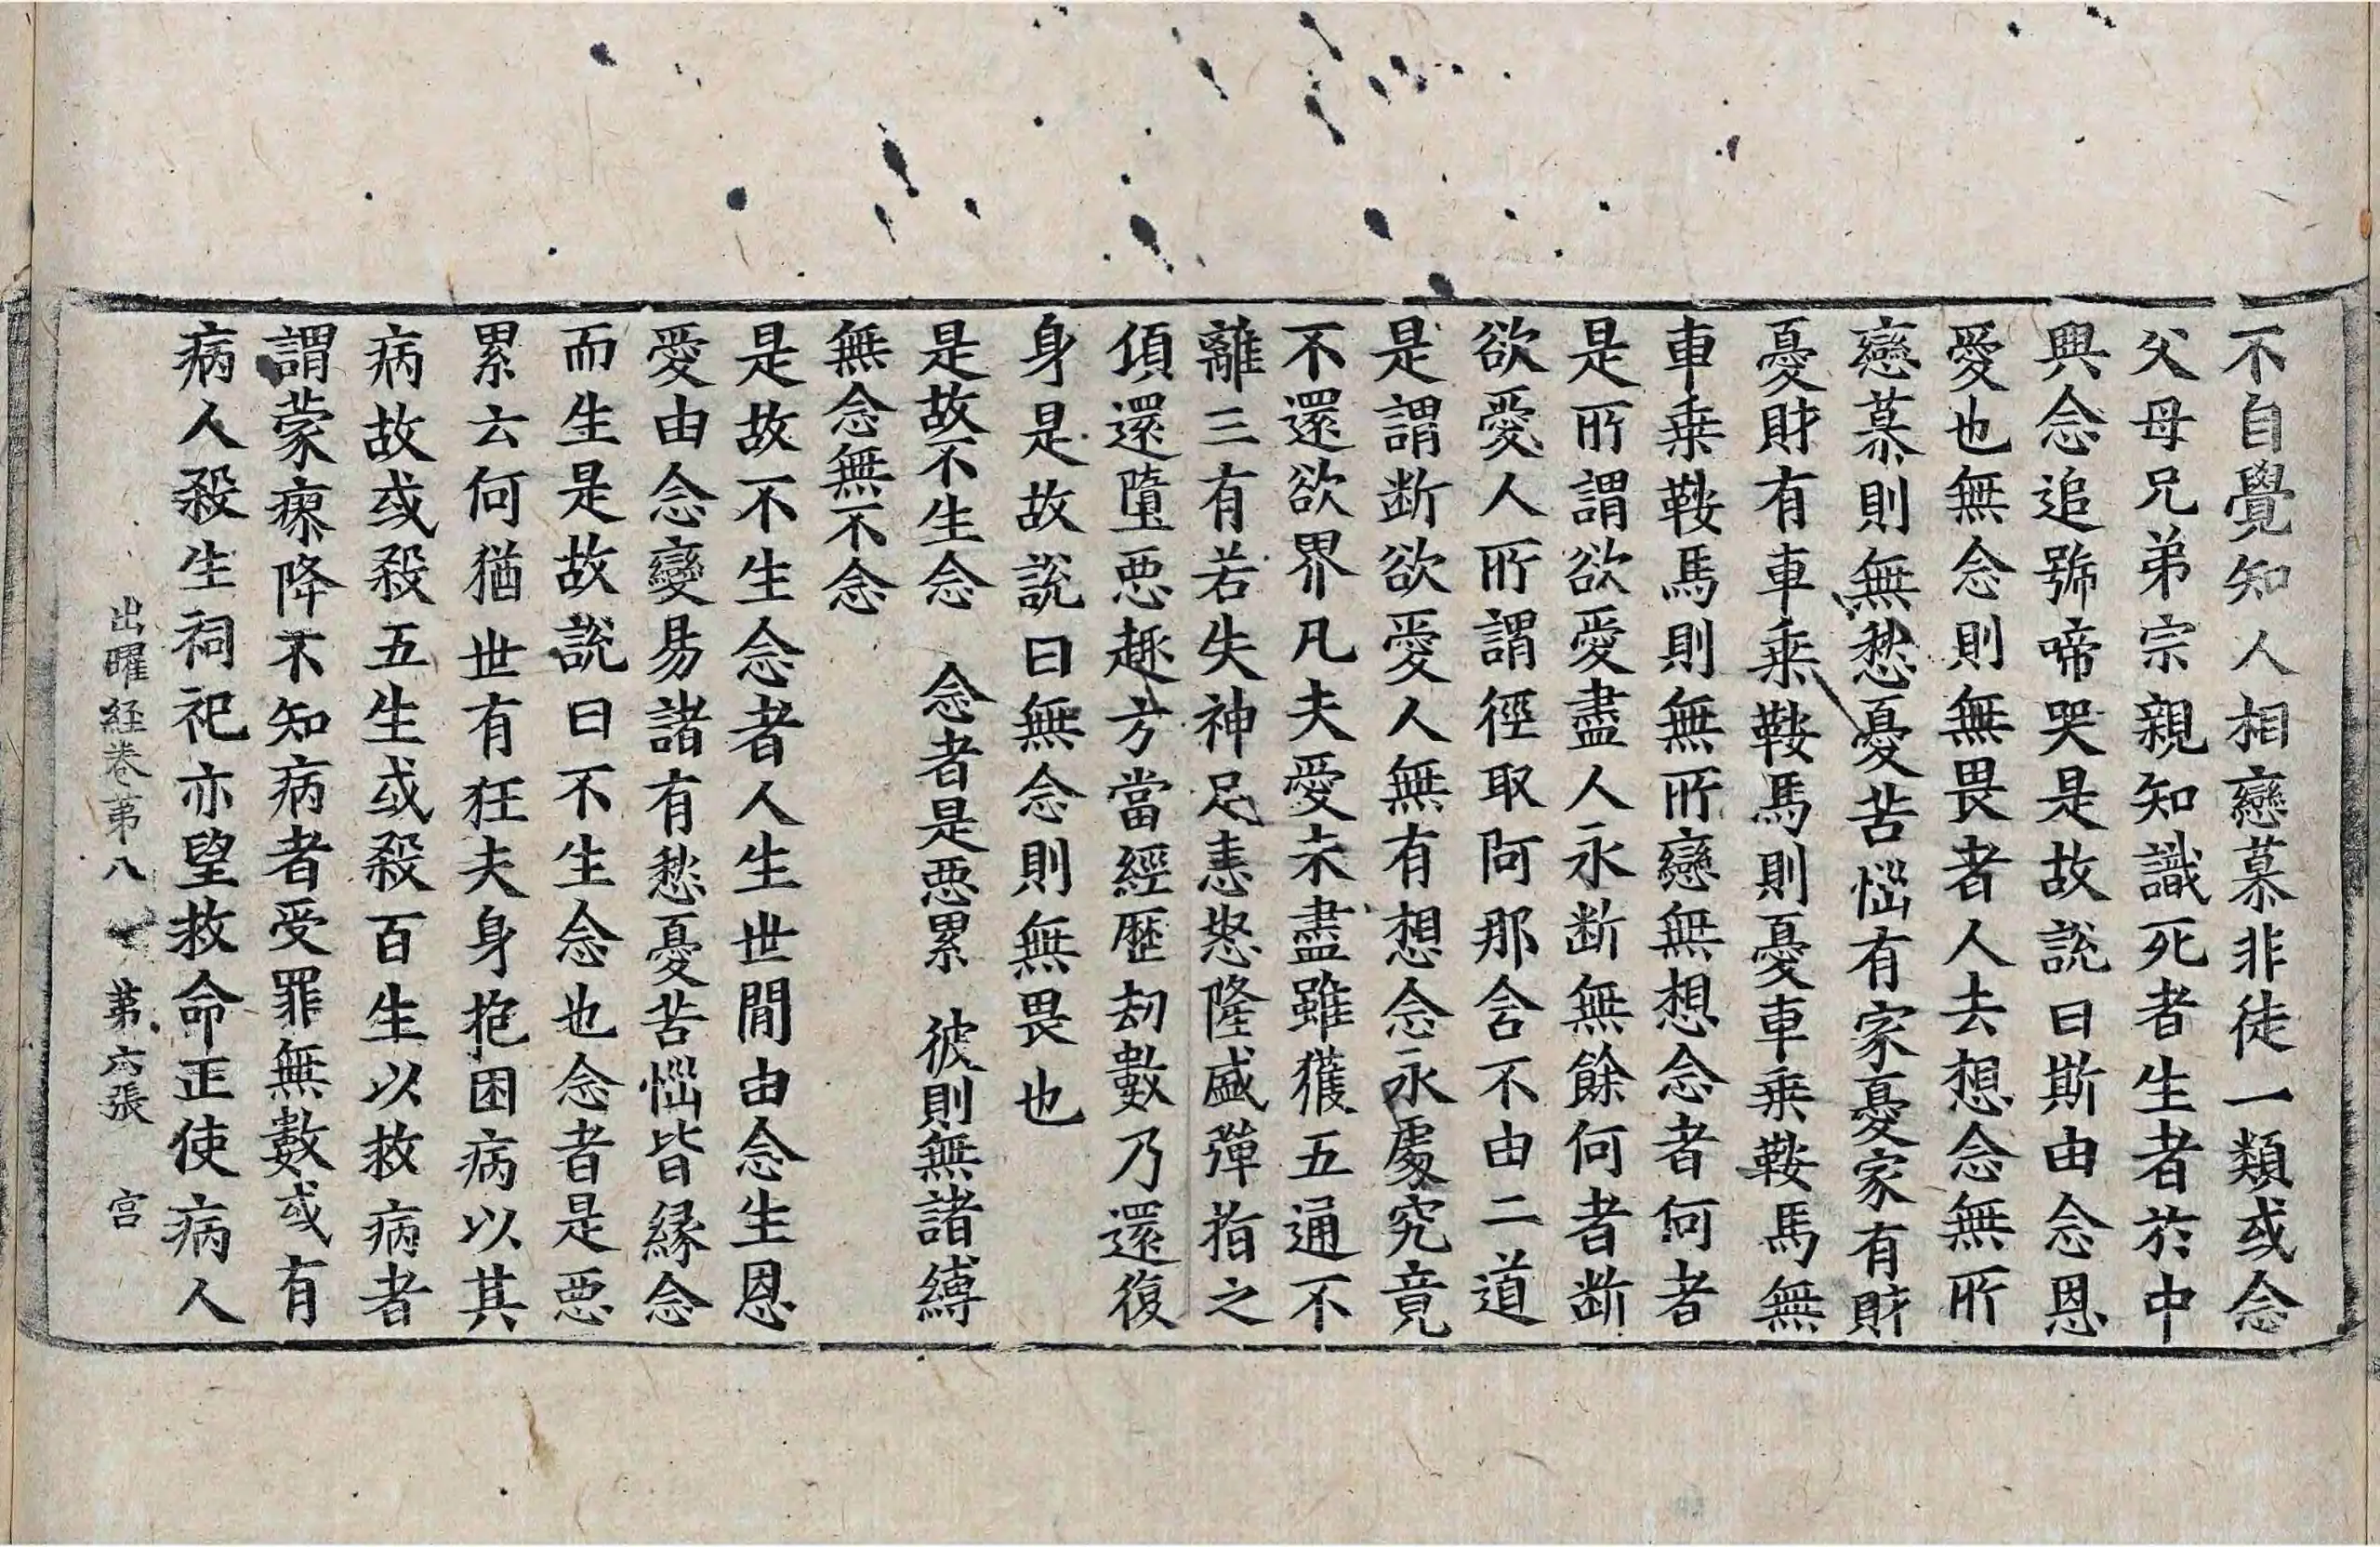 不自覺知人相戀慕非徒一類或念
父母兄弟宗親知識死者生者於中
興念追號啼哭是故說曰斯由念恩
愛也無念則無畏者人去想念無所
戀慕則無愁憂苦惱有家憂家有財
憂財有車乗鞍馬則憂車乗鞍馬無
車乗鞍馬則無所戀無想念者何者
是所謂欲愛盡人永断無餘何者断
欲愛人所謂徑取阿那含不由二道
是謂断欲愛人無有想念永處究竟
不還欲界凡夫愛未盡雖獲五通不
離三有若失神足恚怒隆盛彈指之
頃還墮惡趣方當經歷劫數乃還復
身是故說曰無念則無畏也
是故不生念　念者是惡累　彼則無諸縛
無念無不念
是故不生念者人生世間由念生恩
愛由念變易諸有愁憂苦惱皆縁念
而生是故說曰不生念也念者是惡
累云何猶世有狂夫身抱困病以其
病故或殺五生或殺百生以救病者
謂蒙瘳降不知病者受罪無數或有
病人殺生祠祀亦望救命正使病人
出曜経卷苐八　苐六張　宫